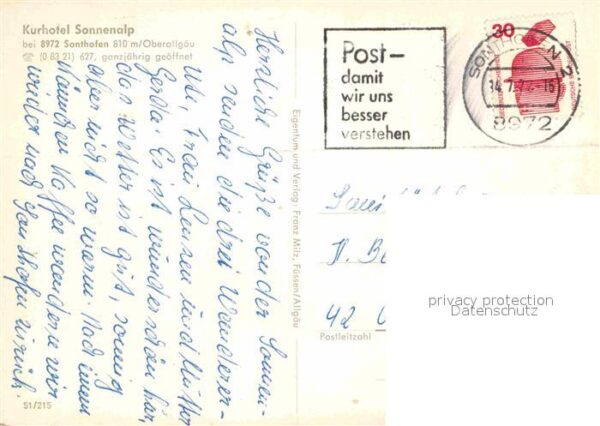 Kurhotel Sonnenalp
bei 8972 Sonthofen 810 m/Oberallgäu
☎ (0 83 21) 627, ganzjährig geöffnet
Herzliche Grüße von der Sonnen-
alp senden die drei Wanderer-
Uli, Frau Lenzen und Mutter
Gerda. Es ist wunderschön hier,
das Wetter ist gut, sonnig
aber nicht so warm. Nach einem
Kännchen Kaffee wandern wir
wieder nach Sonthofen zurück.
51/215
Eigentum und Verlag: Franz Milz, Füssen/Allgäu
Post-
damit
wir uns
besser
verstehen
30
SONTHOFEN 2
14.7.
8972
42
Postleitzahl
privacy protection
Datenschutz